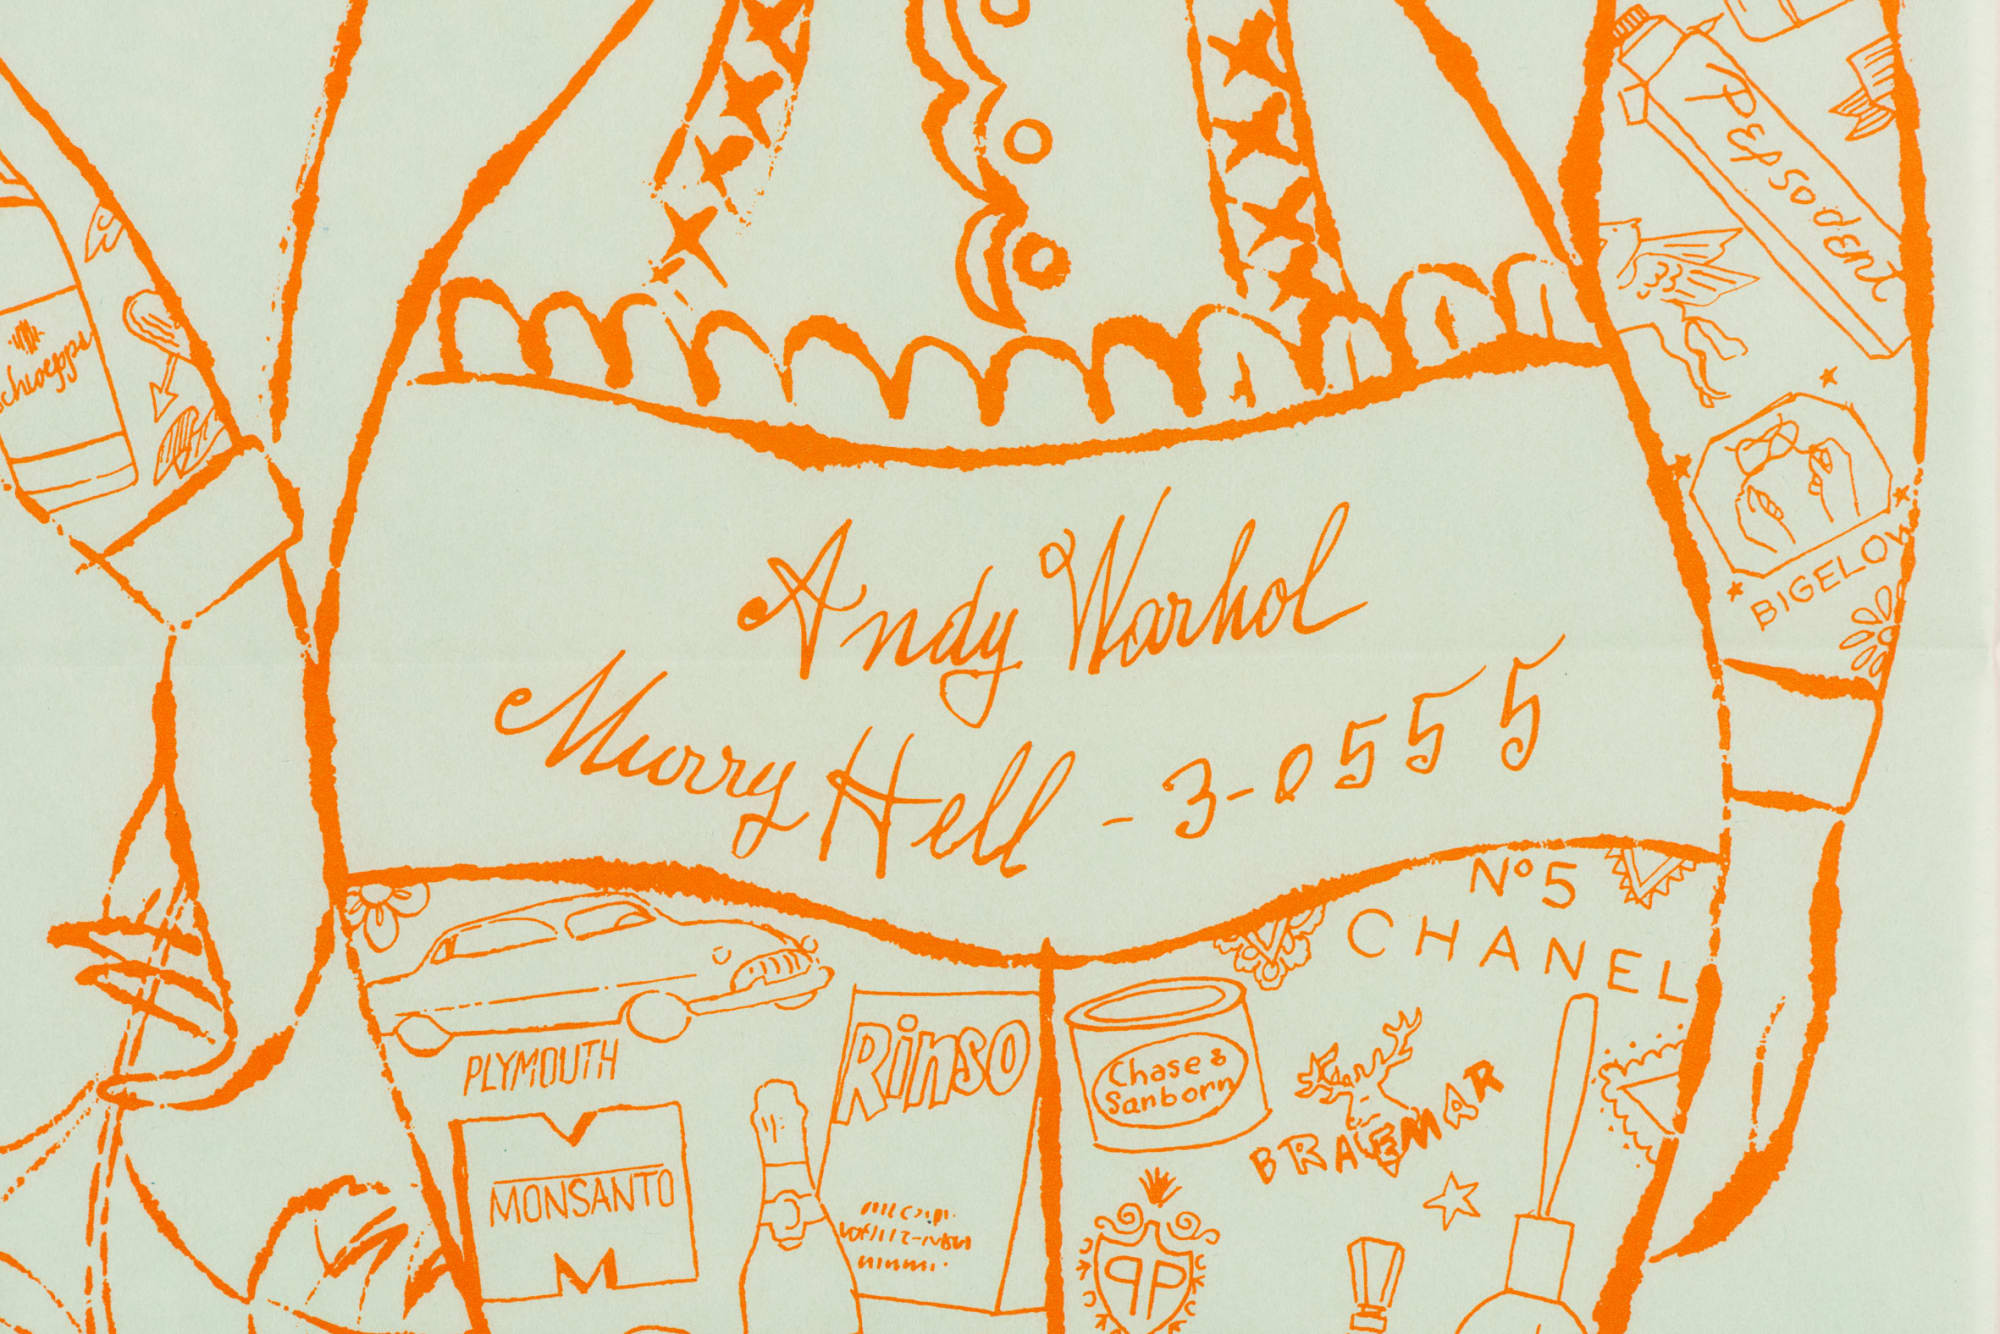 Pepsodent
schweppe
BIGELOW
Andy Warhol
Murry Hell - 3-0555
No 5
CHANEL
PLYMOUTH
Rinso
Chase &
Sanborn
BRAEMAR
MONSANTO
PP